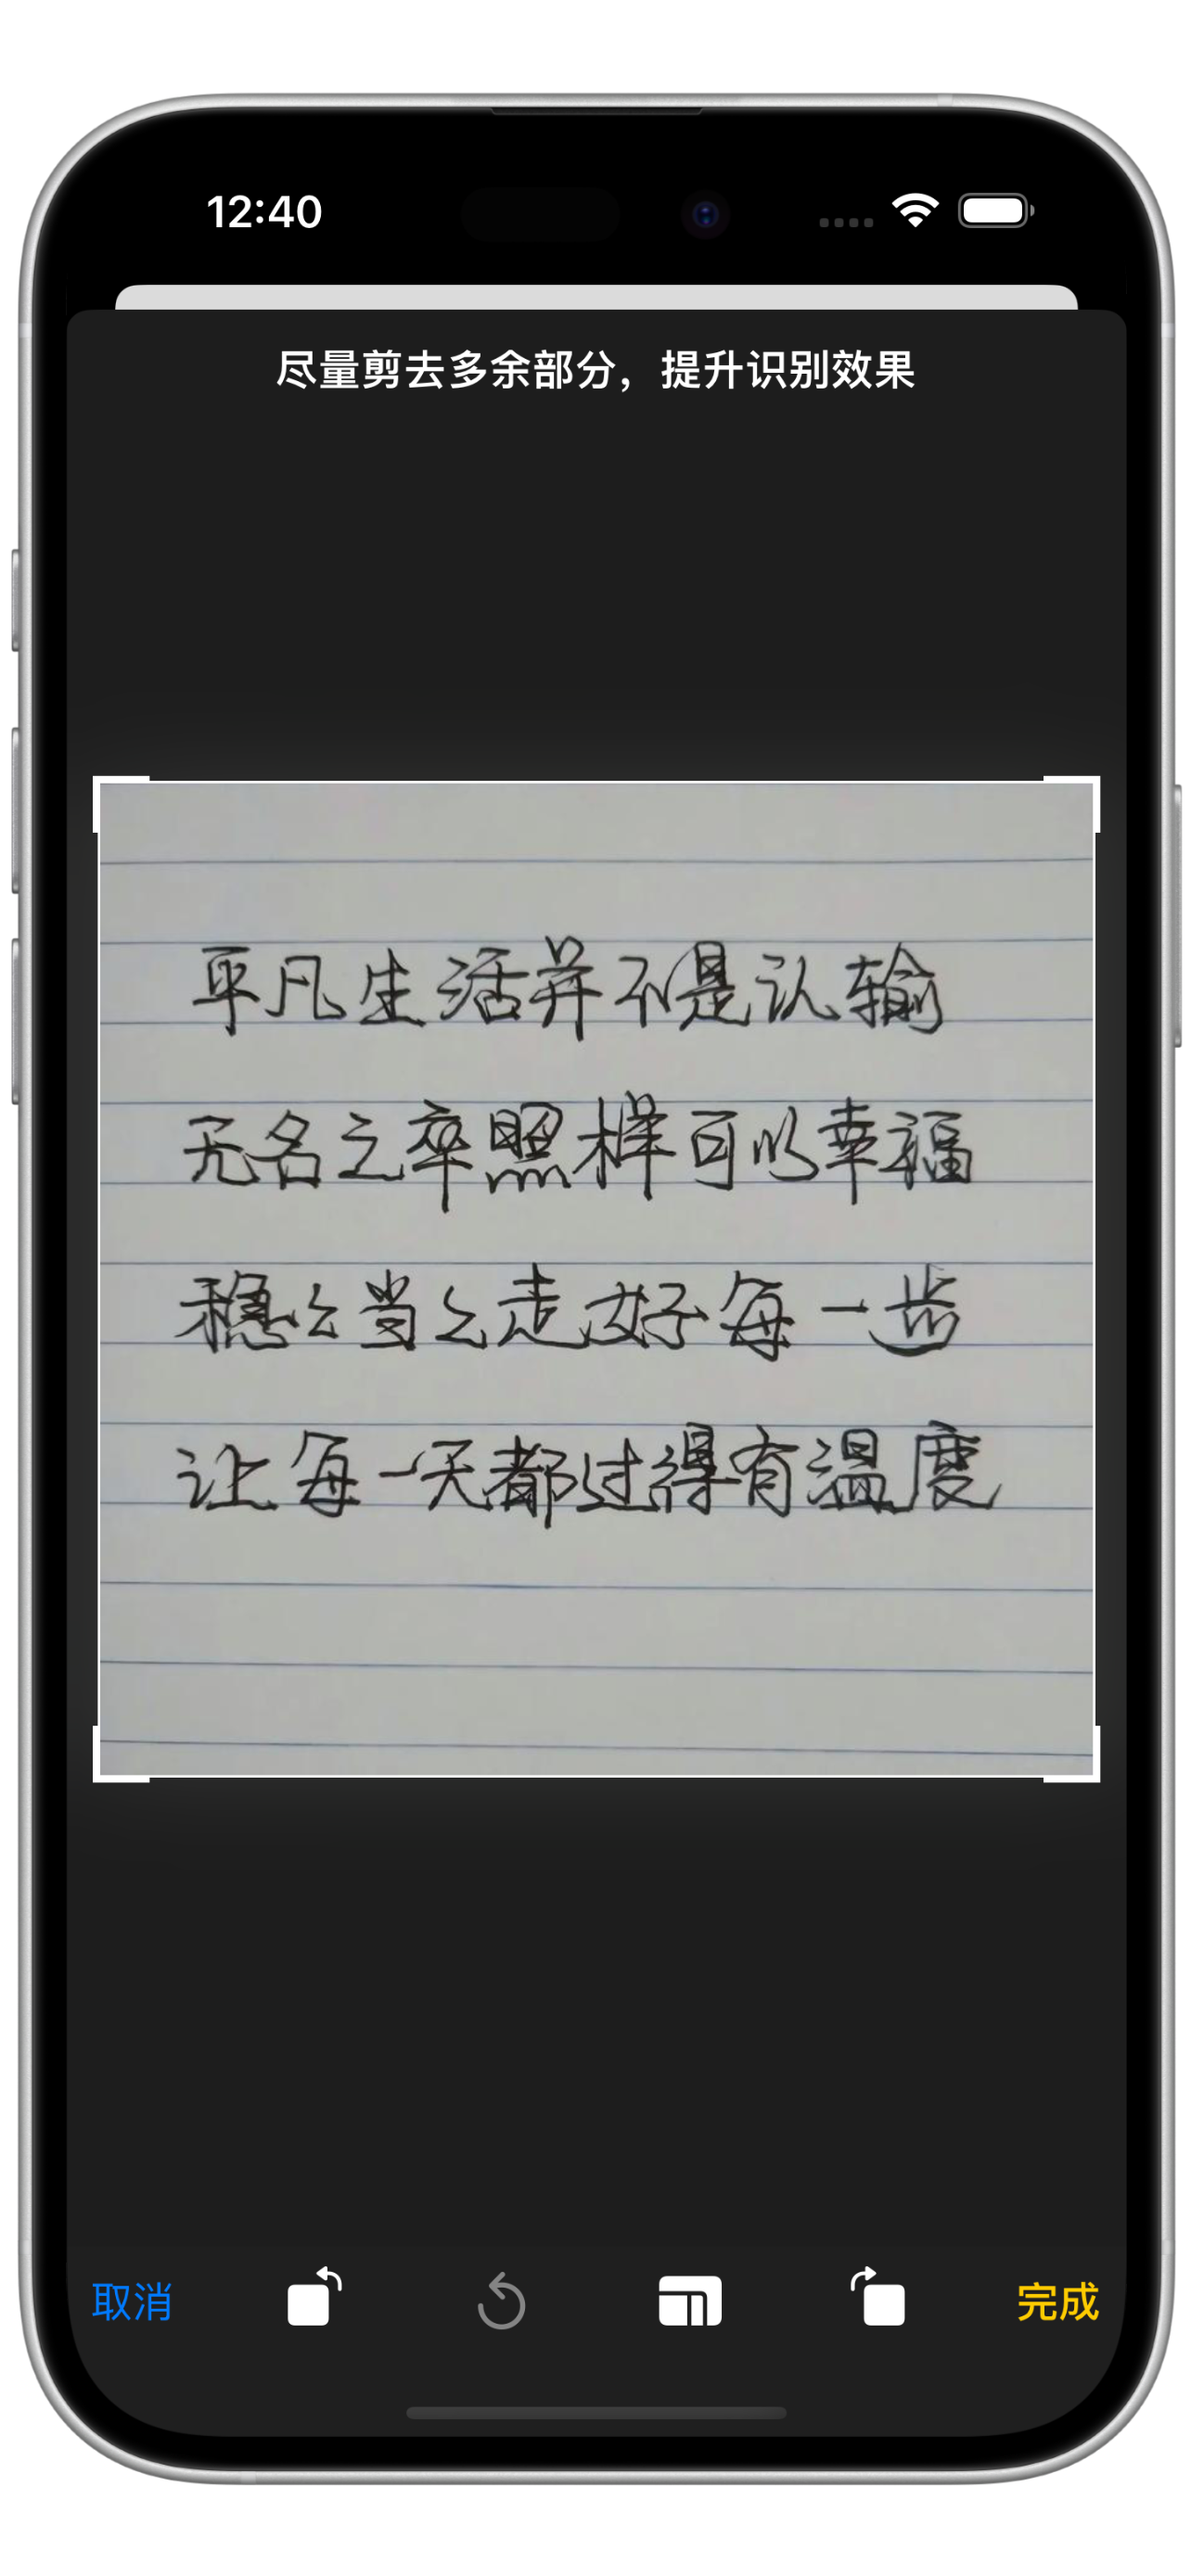 12:40
尽量剪去多余部分，提升识别效果
平凡生活并不是认输
无名之卒照样可以幸福
稳稳当当走好每一步
让每一天都过得有温度
取消
完成